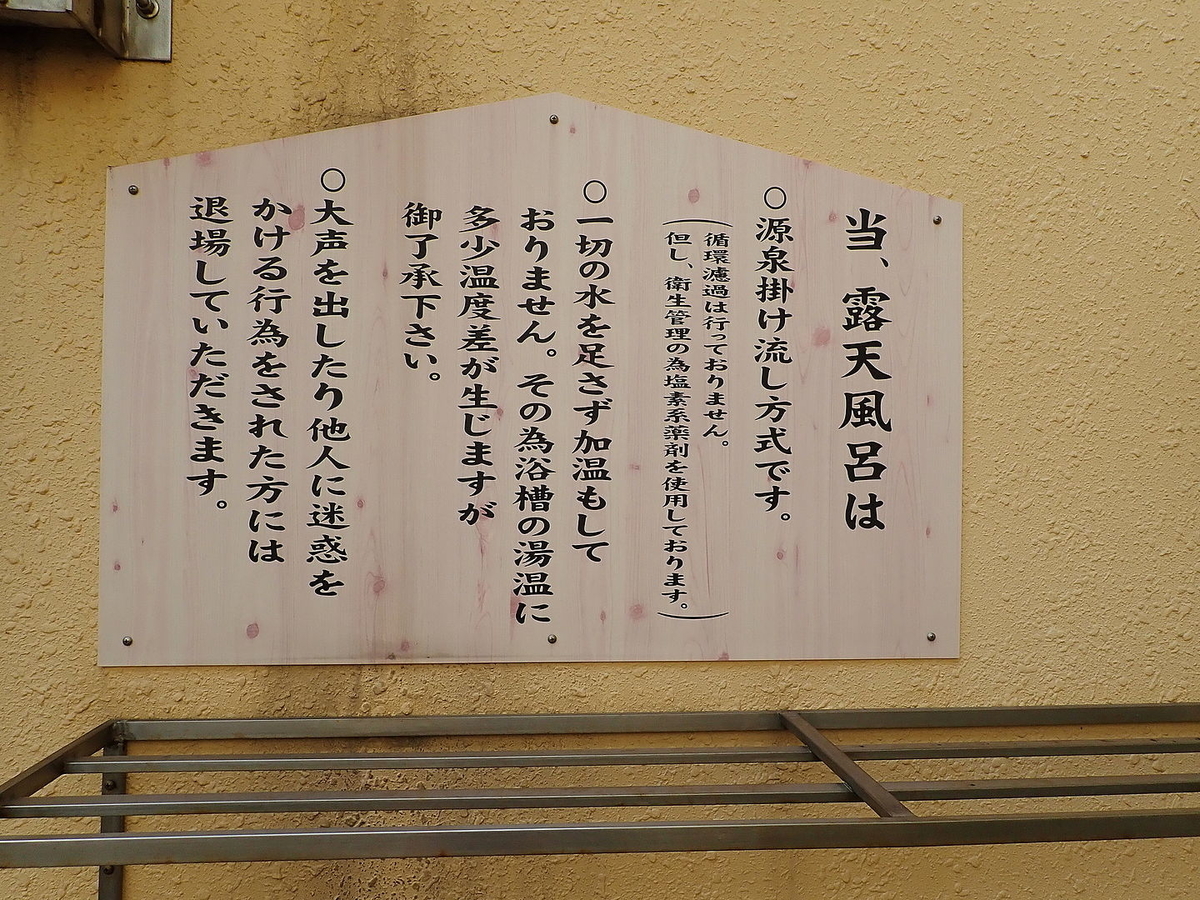 当、露天風呂は
○源泉掛け流し方式です。
(循環濾過は行っておりません。
但し、衛生管理の為塩素系薬剤を使用しております。)
○一切の水を足さず加温もして
おりません。その為浴槽の湯温に
多少温度差が生じますが
御了承下さい。
○大声を出したり他人に迷惑を
かける行為をされた方には
退場していただきます。